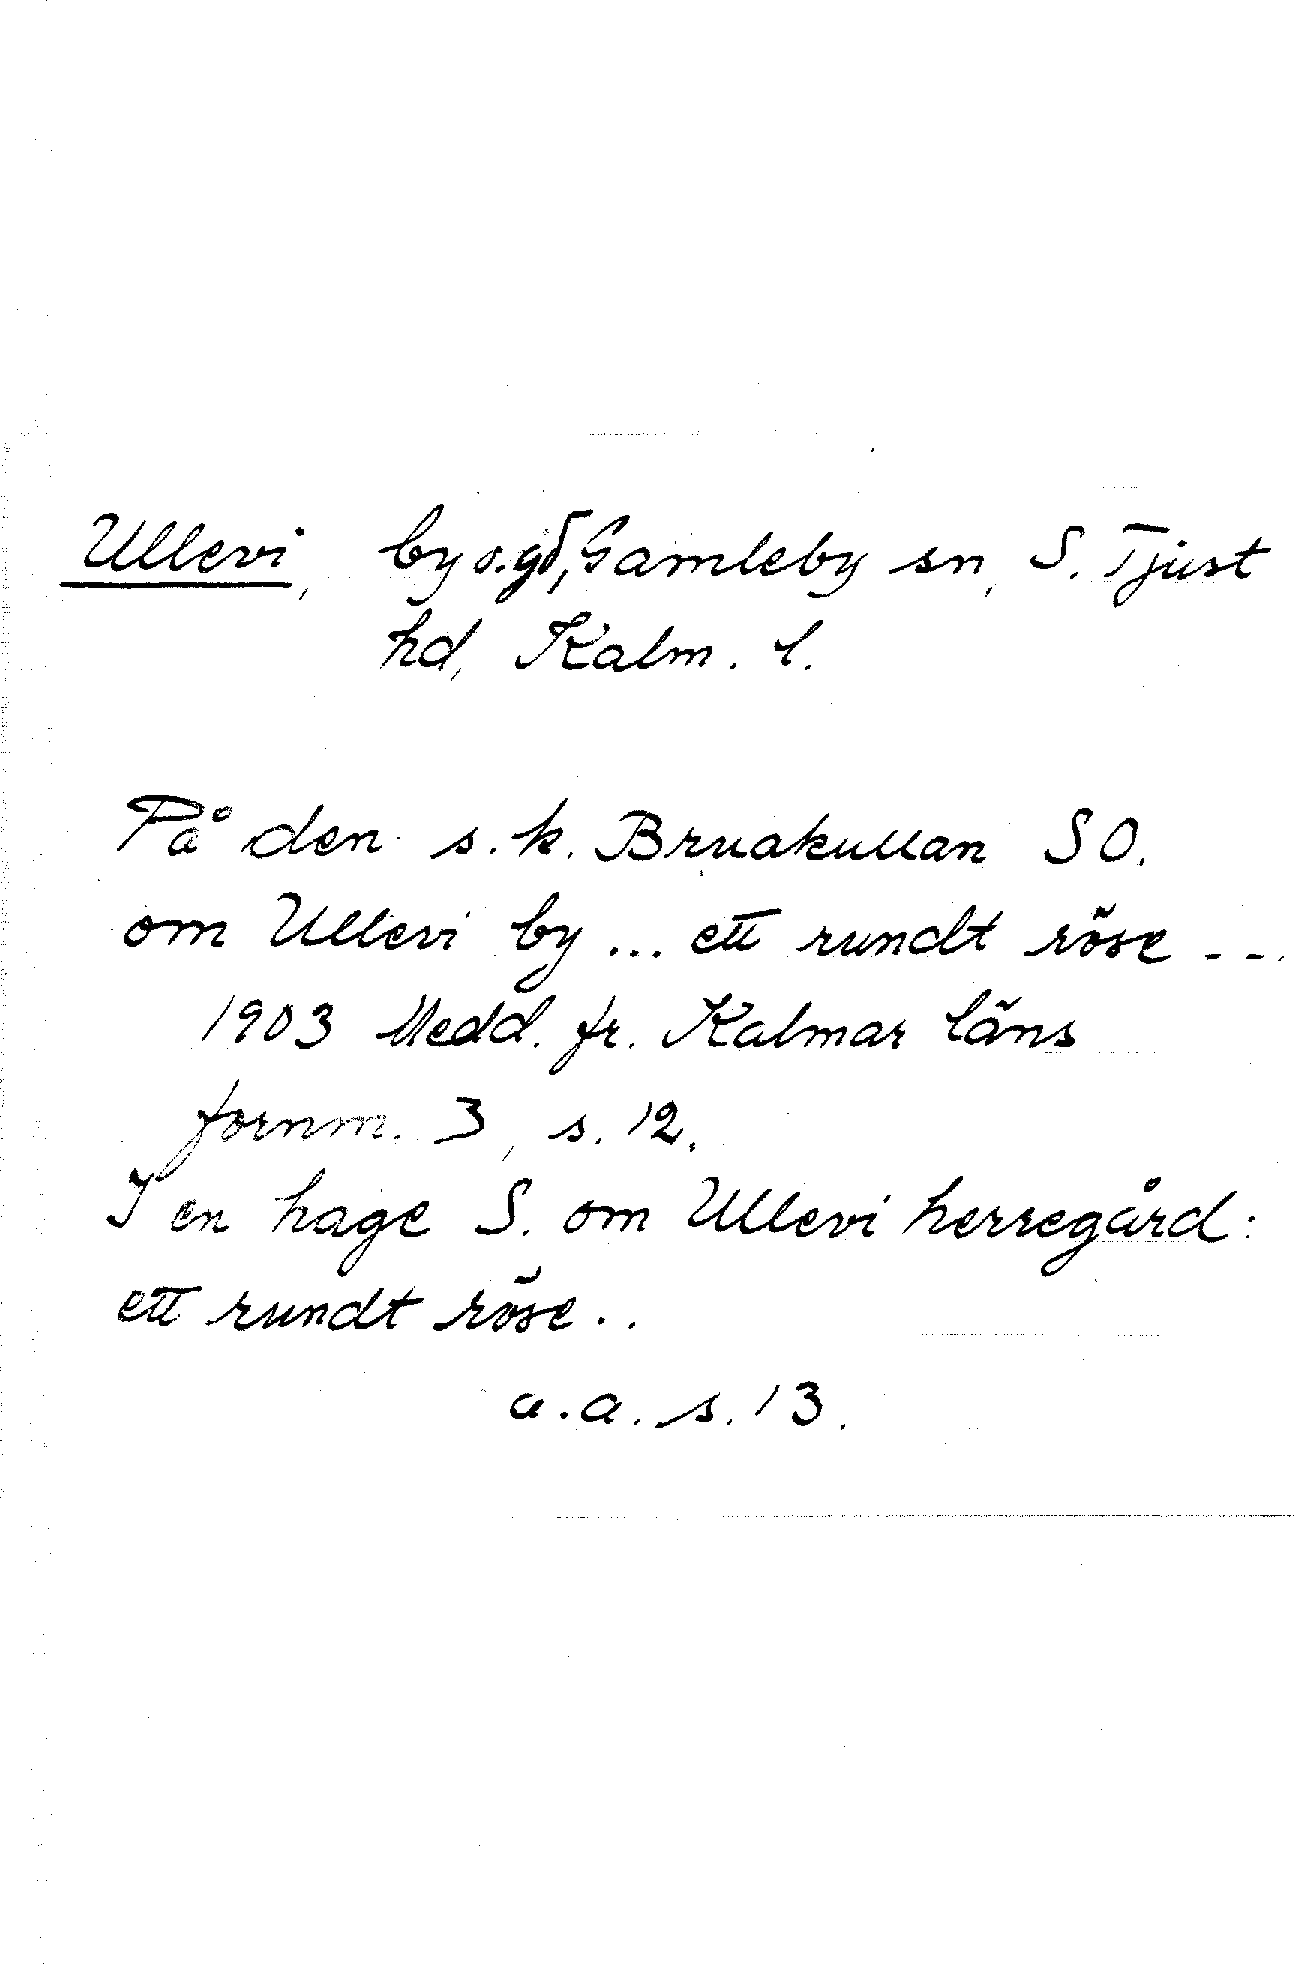 Ullevi, by o. gd, Gamleby sn, S. Tjust
hd, Kalm. l.
På den s.k. Bruakullan SO.
om Ullevi by ... ett rundt röse ---
1903 Medd. fr. Kalmar läns
fornm. 3, s. 12.
I en hage S. om Ullevi herregård:
ett rundt röse..
a.a. s. 13.